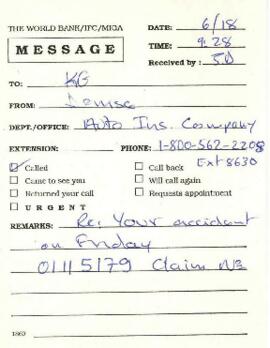 THE WORLD BANK/IFC/MIGA
DATE: 6/18
MESSAGE
TIME: 9:28
Received by: SD
TO: KG
FROM: Denise
DEPT./OFFICE: Auto Ins. Company
EXTENSION: PHONE: 1-800-562-2208
Ext 8630
☑ Called
☐ Call back
☐ Came to see you
☐ Will call again
☐ Returned your call
☐ Requests appointment
☐ URGENT
REMARKS: Re: Your accident
on Friday
01115179 Claim NB
1860